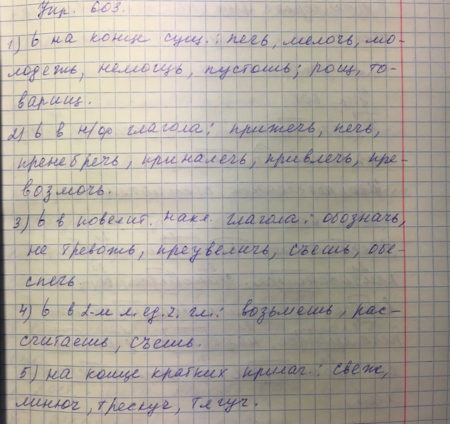 Упр. 603.
1) ь на конце сущ.: печь, мелочь, мо-
лодежь, немощь, пустошь; рощ, то-
варищ.
2) ь в н/ф глагола: прижечь, печь,
пренебречь, приналечь, привлечь, пре-
возмочь.
3) ь в повелит. накл. глагола: обозначь,
не тревожь, преувеличь, съешь, обе-
спечь
4) ь в 2-м л. ед. ч. гл.: возьмешь, рас-
считаешь, съешь.
5) на конце кратких прилаг.: свеж,
линюч, трескуч, тягуч.